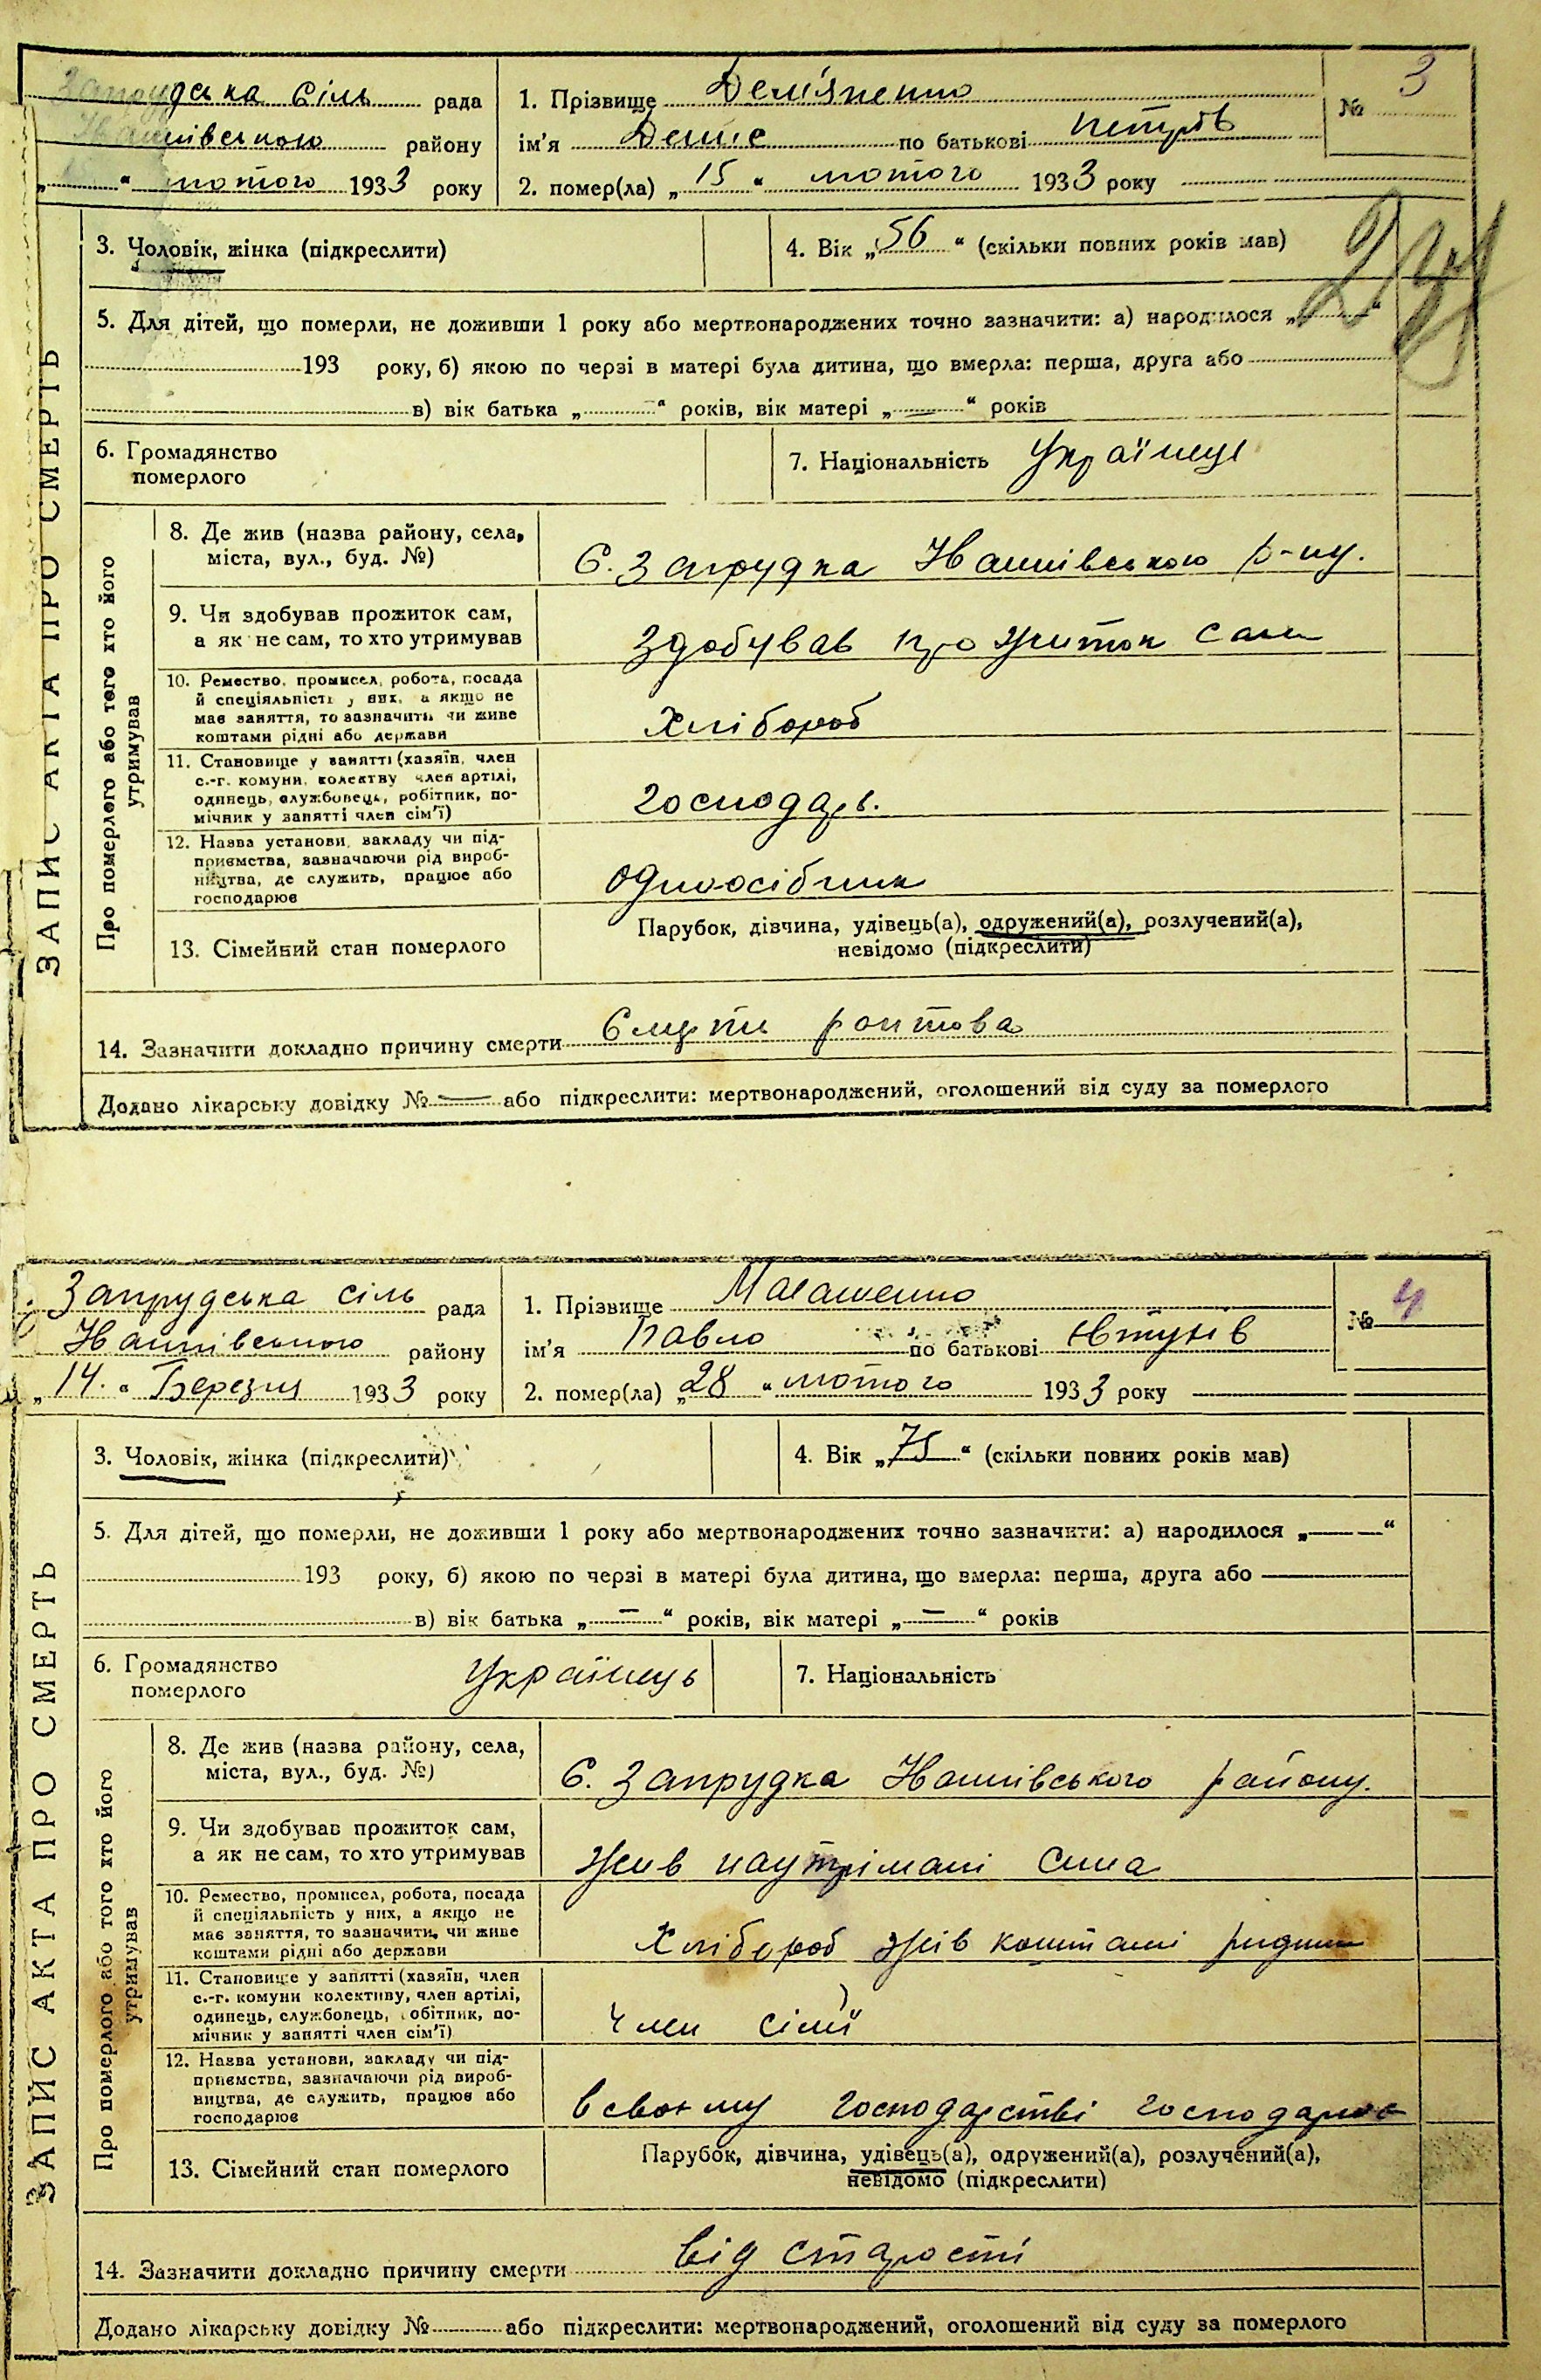 Запрудська сіль рада
Івашківського району
„ “ лютого 1933 року
1. Прізвище Дем'яненко
ім'я Денис по батькові Петрів
2. помер(ла) „ 15 “ лютого 1933 року
№ 3
ЗАПИС АКТА ПРО СМЕРТЬ
3. Чоловік, жінка (підкреслити)
4. Вік „ 56 “ (скільки повних років мав)
5. Для дітей, що померли, не доживши 1 року або мертвонароджених точно зазначити: а) народилося „ “
193 року, б) якою по черзі в матері була дитина, що вмерла: перша, друга або
в) вік батька „ “ років, вік матері „ — “ років
6. Громадянство
померлого
7. Національність Українець
Про померлого або того хто його
утримував
8. Де жив (назва району, села,
міста, вул., буд. №)
С. Запрудка р-ну.
9. Чи здобував прожиток сам,
а як не сам, то хто утримував
Здобував прожиток сам
10. Ремество, промисел, робота, посада
й спеціяльність у них, а якщо не
має заняття, то зазначити чи живе
коштами рідні або держави
Хлібороб
11. Становище у занятті (хазяїн, член
с.-г. комуни, колективу член артілі,
одинець, службовець, робітник, по-
мічник у занятті член сім'ї)
господарь.
12. Назва установи, закладу чи під-
приємства, зазначаючи рід вироб-
ництва, де служить, працює або
господарює
одноосібник
13. Сімейний стан померлого
Парубок, дівчина, удівець(а), одружений(а), розлучений(а),
невідомо (підкреслити)
14. Зазначити докладно причину смерти раптова
Додано лікарську довідку № — або підкреслити: мертвонароджений, оголошений від суду за померлого
Запрудська сіль рада
району
„ 14. “ Березня 1933 року
1. Прізвище
ім'я Павло по батькові
2. помер(ла) „ 28 “ лютого 1933 року
№ 4
ЗАПИС АКТА ПРО СМЕРТЬ
3. Чоловік, жінка (підкреслити)
4. Вік „ 75 “ (скільки повних років мав)
5. Для дітей, що померли, не доживши 1 року або мертвонароджених точно зазначити: а) народилося „ — “
193 року, б) якою по черзі в матері була дитина, що вмерла: перша, друга або —
в) вік батька „ — “ років, вік матері „ — “ років
6. Громадянство
померлого
Українець
7. Національність
Про померлого або того хто його
утримував
8. Де жив (назва району, села,
міста, вул., буд. №)
С. Запрудка району.
9. Чи здобував прожиток сам,
а як не сам, то хто утримував
Жив наутрімані сина
10. Ремество, промисел, робота, посада
й спеціяльність у них, а якщо не
має заняття, то зазначити, чи живе
коштами рідні або держави
Хлібороб жів коштамі
11. Становище у занятті (хазяїн, член
с.-г. комуни колективу, член артілі,
одинець, службовець, робітник, по-
мічник у занятті член сім'ї)
член сімї
12. Назва установи, закладу чи під-
приємства, зазначаючи рід вироб-
ництва, де служить, працює або
господарює
в своєму господарстві господарює
13. Сімейний стан померлого
Парубок, дівчина, удівець(а), одружений(а), розлучений(а),
невідомо (підкреслити)
14. Зазначити докладно причину смерти від старості
Додано лікарську довідку № або підкреслити: мертвонароджений, оголошений від суду за померлого